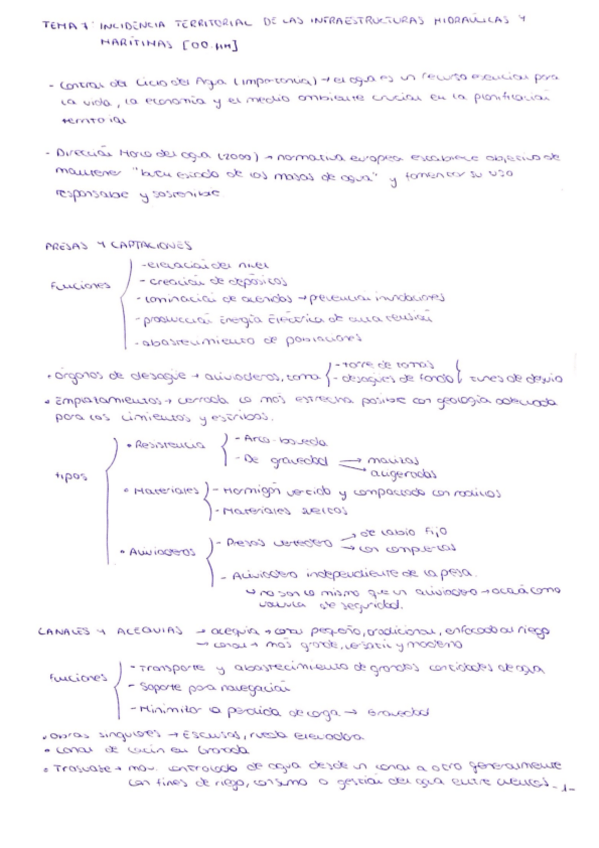 TEMA 7 INCIDENCIA TERRITORIAL DE LAS INFRAESTRUCTURAS HIDRAÚLICAS Y
MARÍTIMAS [OO.HH]
- Control del Ciclo del Agua (importancia) → el agua es un recurso esencial para
la vida, la economía y el medio ambiente crucial en la planificación
territorial
- Dirección Marco del agua (2000) → normativa europea establece objetivo de
mantener "buen estado de las masas de agua" y fomentar su uso
responsable y sostenible
PRESAS Y CAPTACIONES
Funciones
- elevación del nivel
- creación de depósitos
- laminación de avenidas → previenen inundaciones
- producción energía eléctrica de alta tensión
- abastecimiento de poblaciones
• Órganos de desagüe → aliviaderos, toma
- torre de tomas
- desagües de fondo
túnes de desvío
• Emplazamientos → cerrada lo más estrecha posible con geología adecuada
para los cimientos y estribos.
tipos
• Resistencia
- Arco-bóveda
- De gravedad → macizas
→ aligeradas
• Materiales
- Hormigón vertido y compactado con rodillos
- Materiales sueltos
• Aliviaderos
- Presas vertedero → de labio fijo
→ con compuertas
- Aliviadero independiente de la presa.
↳ no son lo mismo que un aliviadero → actúa como
válvula de seguridad.
CANALES Y ACEQUIAS → acequia → canal pequeño, tradicional, enfocado al riego
→ canal → más grande, versátil y moderno
Funciones
- Transporte y abastecimiento de grandes cantidades de agua
- Soporte para navegación
- Minimizar la pérdida de carga → Gravedad
• Obras singulares → Esclusas, rueda elevadora
• Canal de Cacín en Granada
• Trasvase → mov. controlado de agua desde un canal a otro generalmente
con fines de riego, consumo o gestión del agua entre cuencas.
-1-